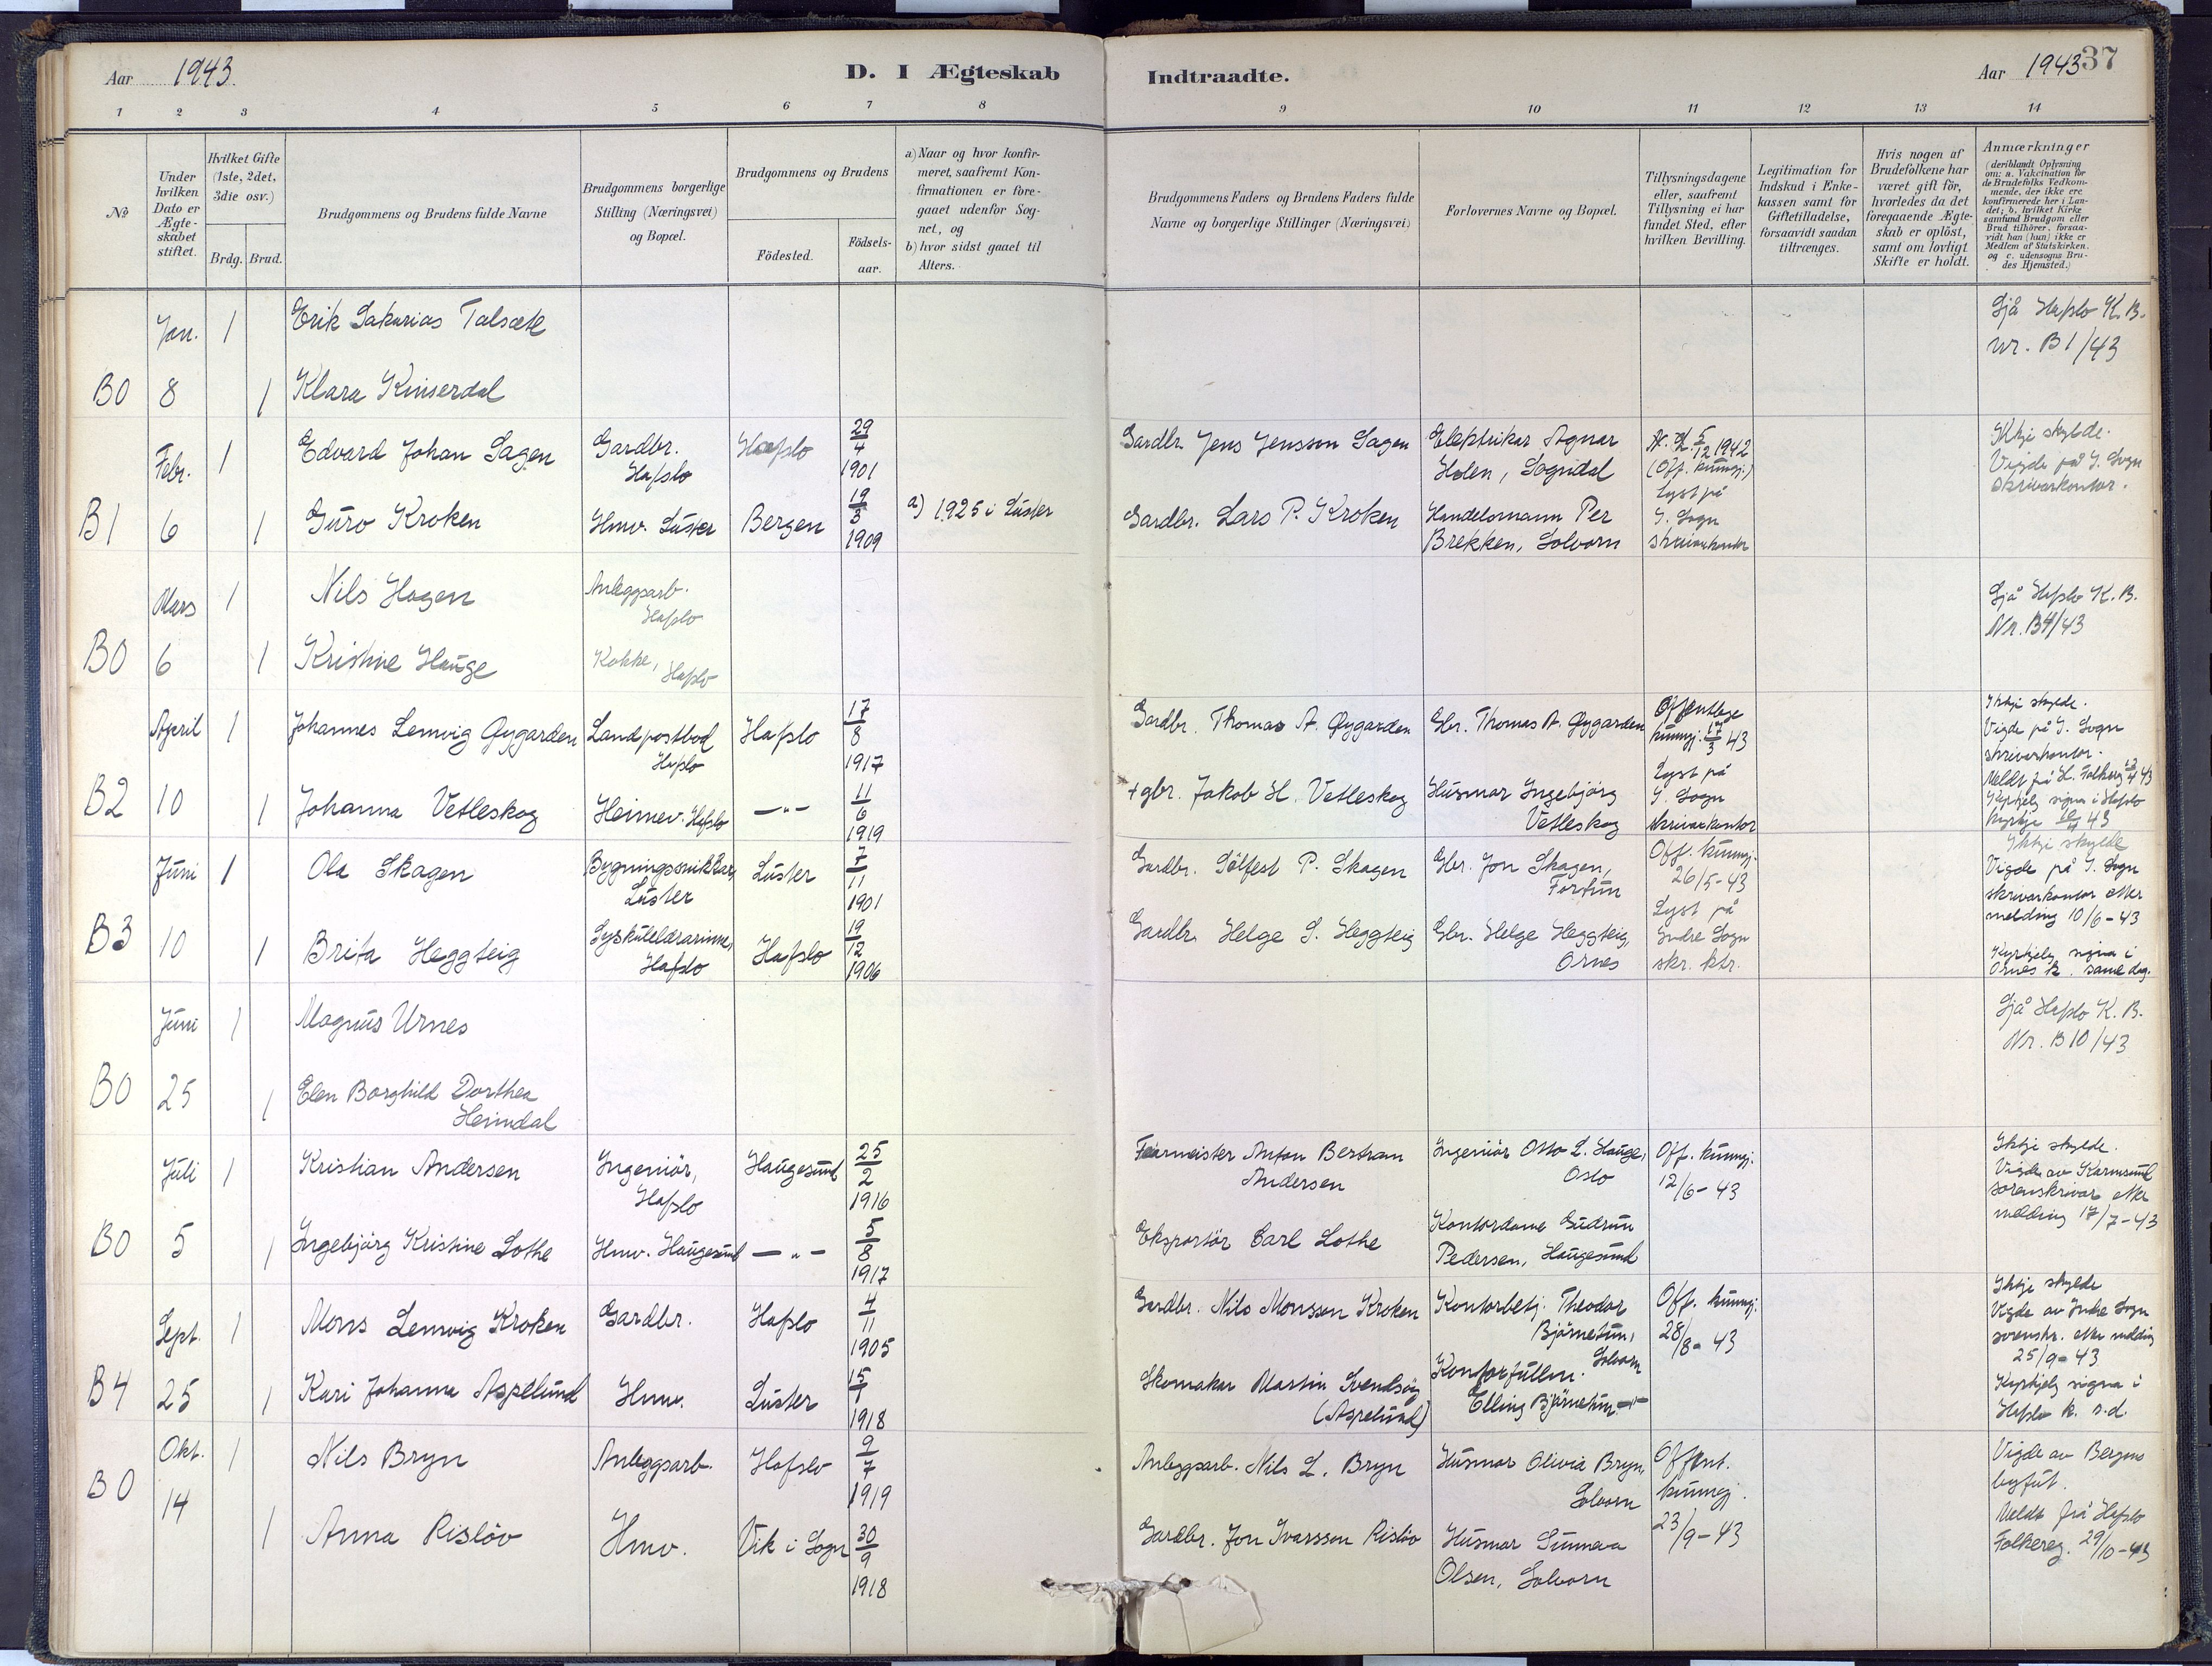 Aar 1943. D. I Ægteskab
Indtraadte. Aar 1943 37
1 2 3 4 5 6 7 8
9 10 11 12 13 14
No
Under hvilken Dato er Ægteskabet stiftet.
Hvilket Gifte (1ste, 2det, 3die osv.)
Brdg. Brud.
Brudgommens og Brudens fulde Navne
Brudgommens borgerlige Stilling (Næringsvei) og Bopæl.
Brudgommens og Brudens
Födested.
Födsels-aar.
a) Naar og hvor konfir-
meret, saafremt Kon-
firmationen er fore-
gaaet udenfor Sog-
net, og
b) hvor sidst gaaet til
Alters.
Brudgommens Faders og Brudens Faders fulde
Navne og borgerlige Stillinger (Næringsvei)
Forlovernes Navne og Bopæl.
Tillysningsdagene
eller, saafremt
Tillysning ei har
fundet Sted, efter
hvilken Bevilling.
Legitimation for
Indskud i Enke-
kassen samt for
Giftetilladelse,
forsaavidt saadan
tiltrænges.
Hvis nogen af
Brudefolkene har
været gift för,
hvorledes da det
foregaaende Ægte-
skab er oplöst,
samt om lovligt
Skifte er holdt.
Anmærkninger
(deriblandt Oplysning
om: a. Vakcination for
de Brudefolks Vedkom-
mende, der ikke ere
konfirmerede her i Lan-
det; b. hvilket Kirke
samfund Brudgom eller
Brud tilhörer, forsaa-
vidt han (hun) ikke er
Medlem af Statskirken.
og c. udensogns Bru-
des Hjemsted.)
Jan. 1 Erik Sakarias Talsæte
Sjå Hafslo K. B.
nr. B 1/43
B0 8 1 Klara Kinserdal
Febr. 1 Edvard Johan Sagen Gardbr. Hafslo Hafslo 29/4 1901
Gardbr. Jens Jensson Sagen
Elektrikar Agnar
Holen, Sogndal
5/12 1942
(Off. kunngj.)
Ikkje skylde.
Vigde på I. Sogn
skrivarkontor.
B1 6 1 Guro Kroken Hmv. Luster Bergen 19/3 1909 a) 1925 i Luster
Gardbr. Lars P. Kroken
Handelsmann Per
Brekken, Solvorn
Lyst på
I. Sogn
skrivarkontor
Mars 1 Nils Hagen Anleggsarb. Hafslo
Sjå Hafslo K. B.
Nr. B4/43
B0 6 1 Kristine Hauge Kokke, Hafslo
April 1 Johannes Lemvig Øygarden Landpostbod Hafslo Hafslo 17/8 1917
Gardbr. Thomas A. Øygarden
Gbr. Thomas A. Øygarden
Offentlege
kunngj. 17/3 43
Ikkje skylde.
Vigde på I. Sogn
skrivarkontor.
Meldt frå H. Folkereg 43
Kyrkjeleg signa i Hafslo
kyrkje 43
B2 10 1 Johanna Vetleskog Heimev. Hafslo —"— 11/6 1919
+ gbr. Jakob H. Vetleskog
Husmor Ingebjörg
Vetleskog
Lyst på
I. Sogn
skrivarkontor
Juni 1 Ola Skagen Bygningssnikkar, Luster Luster 7/11 1901
Gardbr. Sølfest P. Skagen
Gbr. Jon Skagen,
Fortun
Off. kunngj.
26/5-43
Ikkje skylde
Vigde på I. Sogn
skrivarkontor etter
melding 10/6-43
B3 10 1 Brita Heggteig Syskulelærarinne, Hafslo Hafslo 19/12 1906
Gardbr. Helge S. Heggteig
Gbr. Helge Heggteig,
Ornes
Lyst på
Indre Sogn
skr. ktr.
Kyrkjeleg signa i
Ornes k. same dag.
Juni 1 Magnus Urnes
Sjå Hafslo K. B.
Nr. B 10/43
B0 25 1 Elen Borghild Dorthea
Heimdal
Juli 1 Kristian Andersen Ingeniör, Hafslo Haugesund 25/2 1916
Anton Bertram
Andersen
Ingeniör Otto L. Hauge,
Oslo
Off. kunngj.
12/6-43
Ikkje skylde.
Vigde av Karmsund
sorenskrivar etter
melding 17/7-43
B0 5 1 Ingebjörg Kristine Lothe Hmv. Haugesund —"— 5/8 1917
Eksportör Carl Lothe
Kontordame Gudrun
Pedersen, Haugesund
Sept. 1 Mons Lemvig Kroken Gardbr. Hafslo 4/11 1905
Gardbr. Nils Monsson Kroken
Kontorbetj. Theodor
Bjørnetun,
Solvorn
Off. kunngj.
28/8-43
Ikkje skylde
Vigde av Indre Sogn
sorenskr. etter melding
25/9-43
B4 25 1 Kari Johanna Aspelund Hmv. Luster 15/7 1918
Skomakar Martin Svendsøy
(Aspelund)
Kontorfullm.
Elling Bjørnetun —"—
Kyrkjeleg signa i
Hafslo k. s.d.
Okt. 1 Nils Bryn Anleggsarb. Hafslo 9/7 1919
Anleggsarb. Nils L. Bryn
Husmor Olivia Bryn,
Solvorn
Offent.
kunngj.
23/9-43
Vigde av Bergens
byfut.
Meldt frå Hafslo
Folkereg. 29/10-43
B0 14 1 Anna Rislöv Hmv. Vik i Sogn 30/9 1918
Gardbr. Jon Ivarsson Rislöv
Husmor Sunneva
Olsen, Solvorn